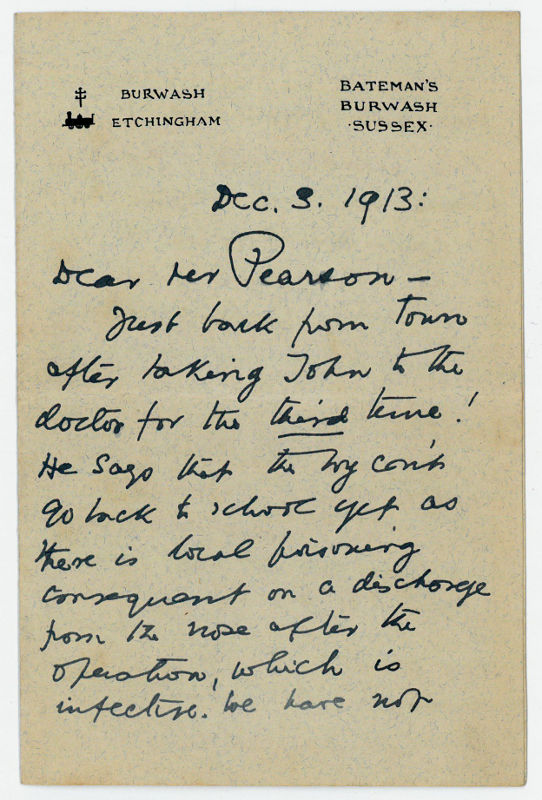 BURWASH
ETCHINGHAM
BATEMAN'S
BURWASH
·SUSSEX·
Dec. 3. 1913:
Dear Pearson –
Just back from town
after taking John to the
doctor for the third time!
He says that the boy can't
go back to school yet as
there is local poisoning
consequent on a discharge
from the nose after the
operation, which is
infective. We have not